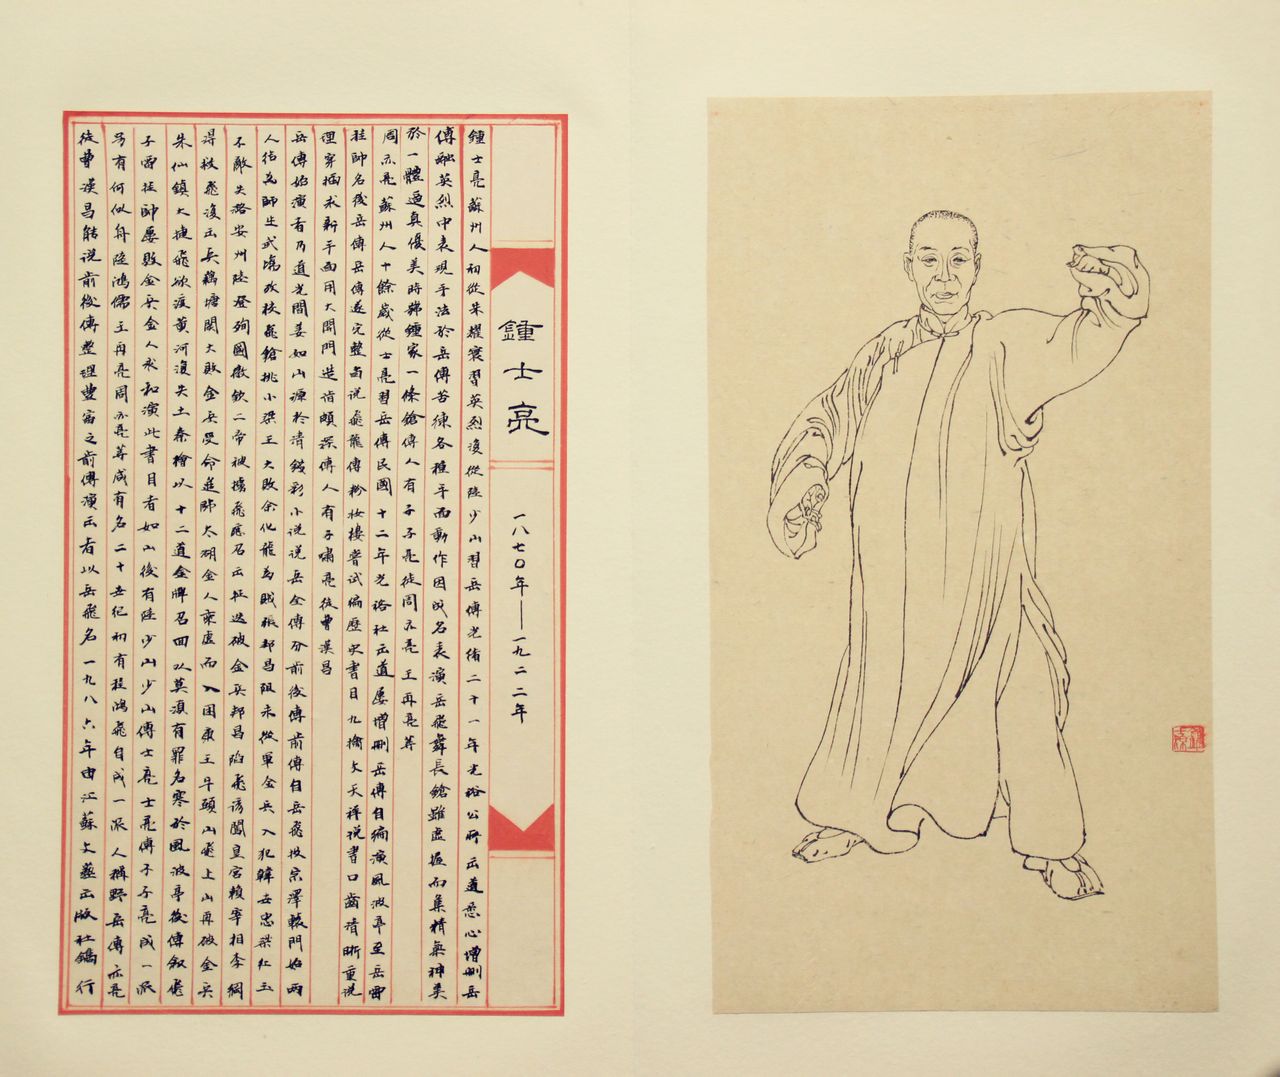 鍾士亮
一八七〇年——一九二二年
鍾士亮蘇州人初從朱耀寰習英烈後從陸少山習岳傳光緒二十一年光裕公所出道悉心增刪岳
傳融英烈中表現手法於岳傳苦練各種手面動作因成名表演岳飛舞長鎗雖虛擬而集精氣神美
於一體逼真優美時稱鍾家一條鎗傳人有子子亮徒周亦亮王再亮等
周亦亮蘇州人十餘歲從士亮習岳傳民國十二年光裕社出道屢增刪岳傳自編演風波亭至岳雷
挂帥名後岳傳岳傳遂完整尚說飛龍傳粉妝樓嘗試編歷史書目九擒文天祥說書口齒清晰重說
理穿插求新手面用大開門造詣頗深傳人有子嘯亮徒曹漢昌
岳傳始演者乃道光間姜如山源於清錢彩小說說岳全傳分前後傳前傳自岳飛投宗澤轅門始兩
人結為師生武場放挑飛鎗挑小梁王大敗余化龍為賊張邦昌阻未從軍金兵入犯韓世忠梁紅玉
不敵失潞安州陸登殉國徽欽二帝被擄飛應召出征迭破金兵邦昌陷飛謗闖皇宮賴宰相李綱
得救飛復出兵藕塘關大敗金兵受命進陣太湖金人乘虛而入困康王牛頭山飛上山再破金兵
朱仙鎮大捷飛欲渡黃河復失土秦檜以十二道金牌召回以莫須有罪名害於風波亭後傳叙飛
子雷挂帥屢敗金兵金人求和演此書目者如山後有陸少山少山傳士亮士亮傳子子亮成一派
另有何似舟陸鴻儒王再亮周亦亮等咸有名二十世紀初有程鴻飛自成一派人稱野岳傳亦亮
徒曹漢昌能說前後傳整理豐富之前傳演出者以岳飛名一九八六年由江蘇文藝出版社鐫行